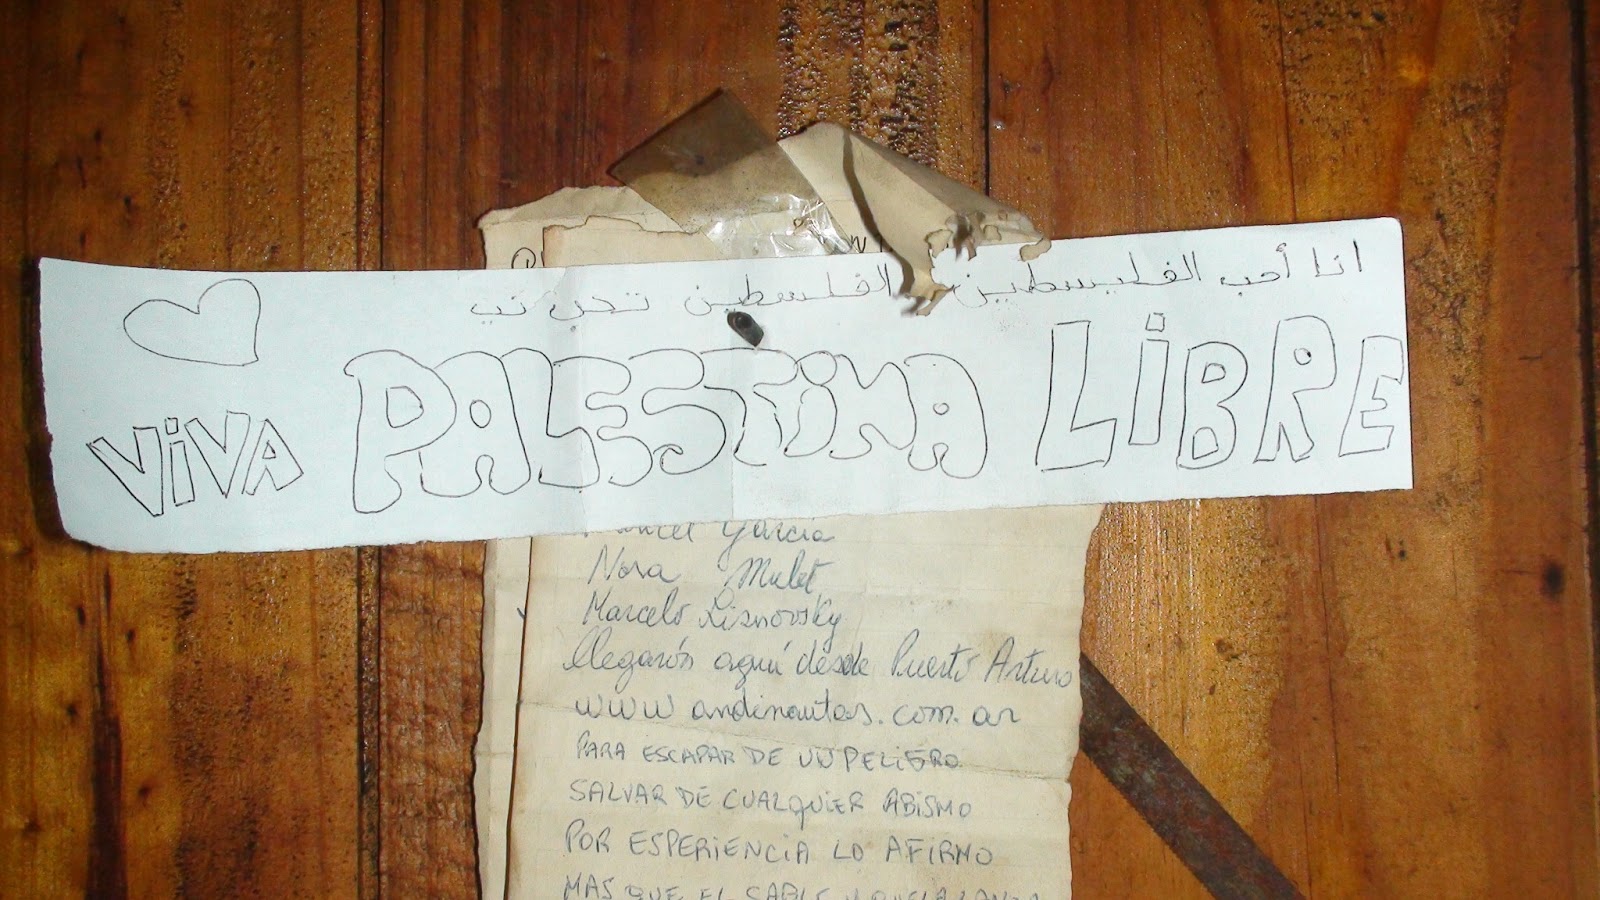 انا أحب الفليسطين الفلسطين تحن تب
VIVA PALESTINA LIBRE
Garcia
Nora Mulet
Marcelo Lisnovsky
llegarón aquí desde Puerto Arturo
www andinautas.com.ar
PARA ESCAPAR DE UN PELIGRO
SALVAR DE CUALQUIER ABISMO
POR ESPERIENCIA LO AFIRMO
MAS QUE EL SABLE Y QUE LA LANZA